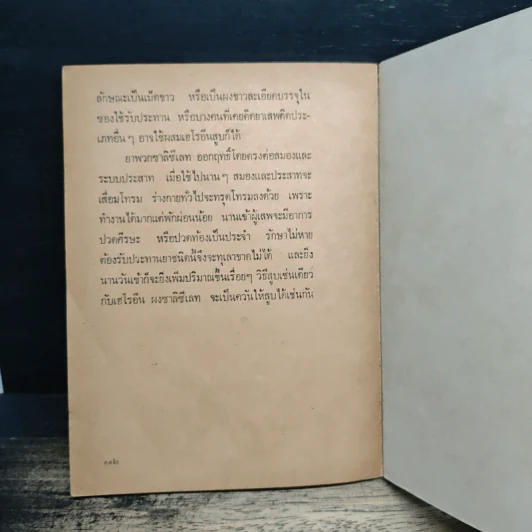 ลักษณะเป็นเม็ดขาว หรือเป็นผงขาวละเอียดบรรจุใน
ซองใช้รับประทาน หรือบางคนที่เคยติดยาเสพติดประ-
เภทอื่น ๆ อาจใช้ผสมเฮโรอีนสูบก็ได้
ยาพวกซาลิซีเลท ออกฤทธิ์โดยตรงต่อสมองและ
ระบบประสาท เมื่อใช้ไปนาน ๆ สมองและประสาทจะ
เสื่อมโทรม ร่างกายทั่วไปจะทรุดโทรมลงด้วย เพราะ
ทำงานได้มากแต่พักผ่อนน้อย นานเข้าผู้เสพจะมีอาการ
ปวดศีรษะ หรือปวดท้องเป็นประจำ รักษาไม่หาย
ต้องรับประทานยาชนิดนี้จึงจะทุเลาขาดไม่ได้ และยิ่ง
นานวันเข้าก็จะยิ่งเพิ่มปริมาณขึ้นเรื่อยๆ วิธีสูบเช่นเดียว
กับเฮโรอีน ผงซาลิซีเลท จะเป็นควันให้สูบได้เช่นกัน